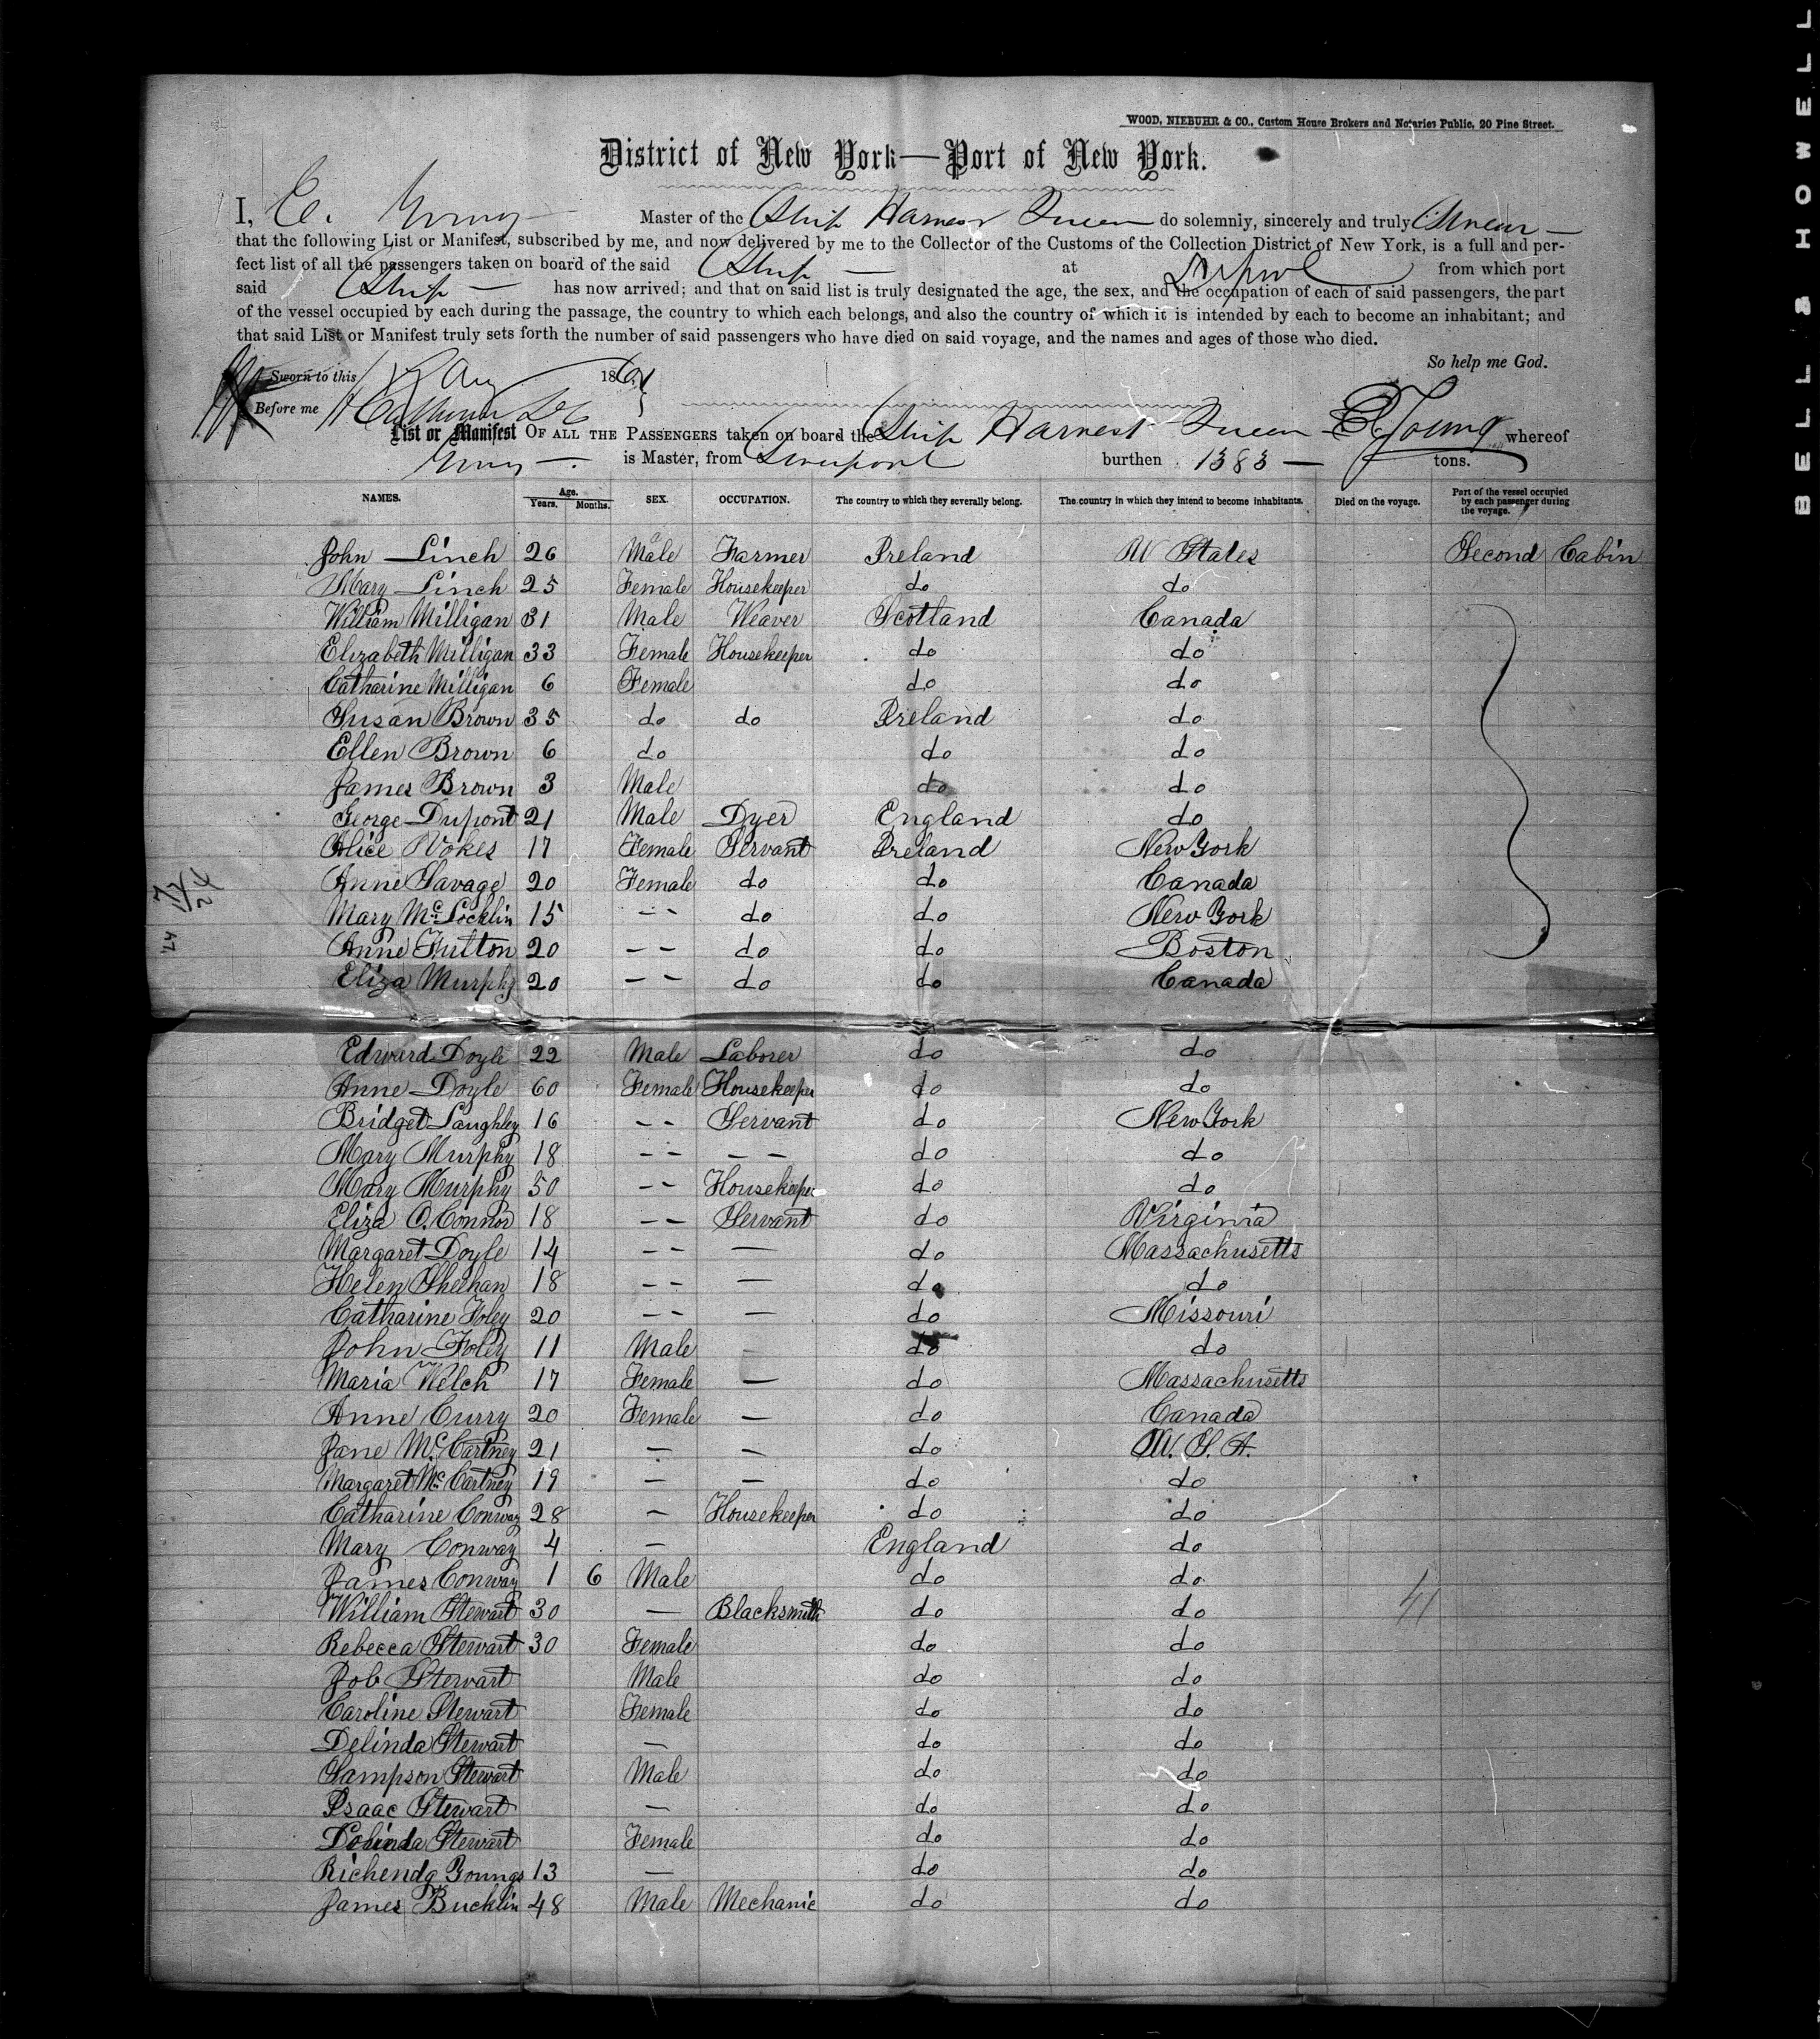 WOOD, NIEBUHR & CO., Custom House Brokers and Notaries Public, 20 Pine Street.
District of New York—Port of New York.
I, E. Young Master of the Ship Harvest Queen do solemnly, sincerely and truly Swear
that the following List or Manifest, subscribed by me, and now delivered by me to the Collector of the Customs of the Collection District of New York, is a full and per-
fect list of all the passengers taken on board of the said Ship at Liverpool from which port
said Ship has now arrived; and that on said list is truly designated the age, the sex, and the occupation of each of said passengers, the part
of the vessel occupied by each during the passage, the country to which each belongs, and also the country of which it is intended by each to become an inhabitant; and
that said List or Manifest truly sets forth the number of said passengers who have died on said voyage, and the names and ages of those who died.
So help me God.
Sworn to this Aug 186
Before me
List or Manifest OF ALL THE PASSENGERS taken on board the Ship Harvest Queen E. Young whereof
Young is Master, from Liverpool burthen 1383 tons.
NAMES. Age. Years. Months. SEX. OCCUPATION. The country to which they severally belong. The country in which they intend to become inhabitants. Died on the voyage. Part of the vessel occupied by each passenger during the voyage.
John Linch 26 Male Farmer Ireland U States Second Cabin
Mary Linch 25 Female Housekeeper do do
William Milligan 31 Male Weaver Scotland Canada
Elizabeth Milligan 33 Female Housekeeper do do
Catharine Milligan 6 Female do do
Susan Brown 35 do do Ireland do
Ellen Brown 6 do do do
James Brown 3 Male do do
George Dupont 21 Male Dyer England do
Alice Vokes 17 Female Servant Ireland New York
Anne Savage 20 Female do do Canada
Mary McLocklin 15 -- do do New York
Anne Futton 20 -- do do Boston
Eliza Murphy 20 -- do do Canada
Edward Doyle 22 Male Laborer do do
Anne Doyle 60 Female Housekeeper do do
Bridget Laughley 16 -- Servant do New York
Mary Murphy 18 -- -- do do
Mary Murphy 50 -- Housekeeper do do
Eliza O.Connor 18 -- Servant do Virginia
Margaret Doyle 14 -- — do Massachusetts
Helen Sheehan 18 -- — do do
Catharine Foley 20 -- — do Missouri
John Foley 11 Male — do do
Maria Welch 17 Female — do Massachusetts
Anne Curry 20 Female — do Canada
Jane McCartney 21 — — do U. S. A.
Margaret McCartney 19 — — do do
Catharine Conway 28 — Housekeeper do do
Mary Conway 4 — England do
James Conway 1 6 Male do do
William Stewart 30 — Blacksmith do do 41
Rebecca Stewart 30 Female do do
Job Stewart Male do do
Caroline Stewart Female do do
Delinda Stewart — do do
Sampson Stewart Male do do
Isaac Stewart — do do
Stewart Female do do
Richenda Youngs 13 — do do
James Bucklin 48 Male Mechanic do do
BELL & HOWELL